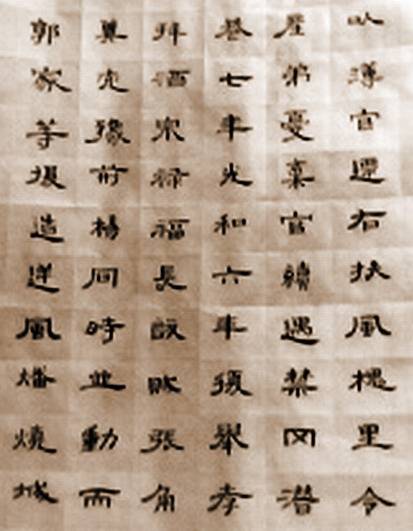 以薄官遷右扶風槐里令
產弟憂棄官續遇禁罔潛
巷七年光和六年復舉孝
拜酒泉祿福長訞賊張角
冀兗豫荊楊同時並動而
郭家等復造逆風燔燒城